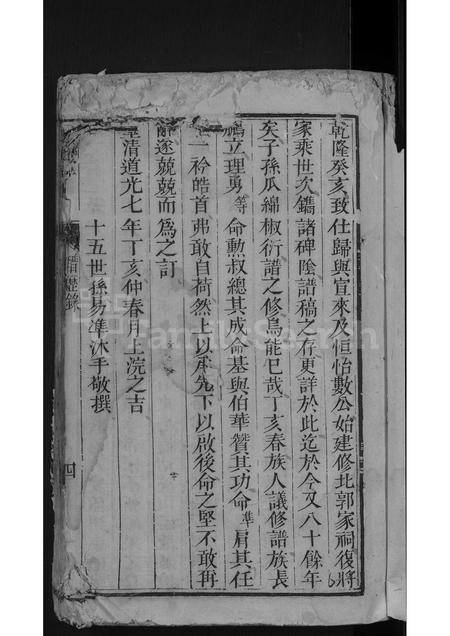 乾隆癸亥致仕歸與宣來及恒怡數公始建修北郭家祠復將
家乘世次鐫諸碑陰譜稿之存更詳於此迄於今又八十餘年
矣子孫瓜綿椒衍譜之修烏能已哉丁亥春族人議修譜族長
鵬立理勇等命勲叔總其成命基與伯華贊其功命準肩其任
一衿皓首弗敢自荷然上以承先下以啟後命之堅不敢再
辭遂兢兢而為之訂
皇清道光七年丁亥仲春月上浣之吉
十五世孫易準沐手敬撰
四
FamilySearch